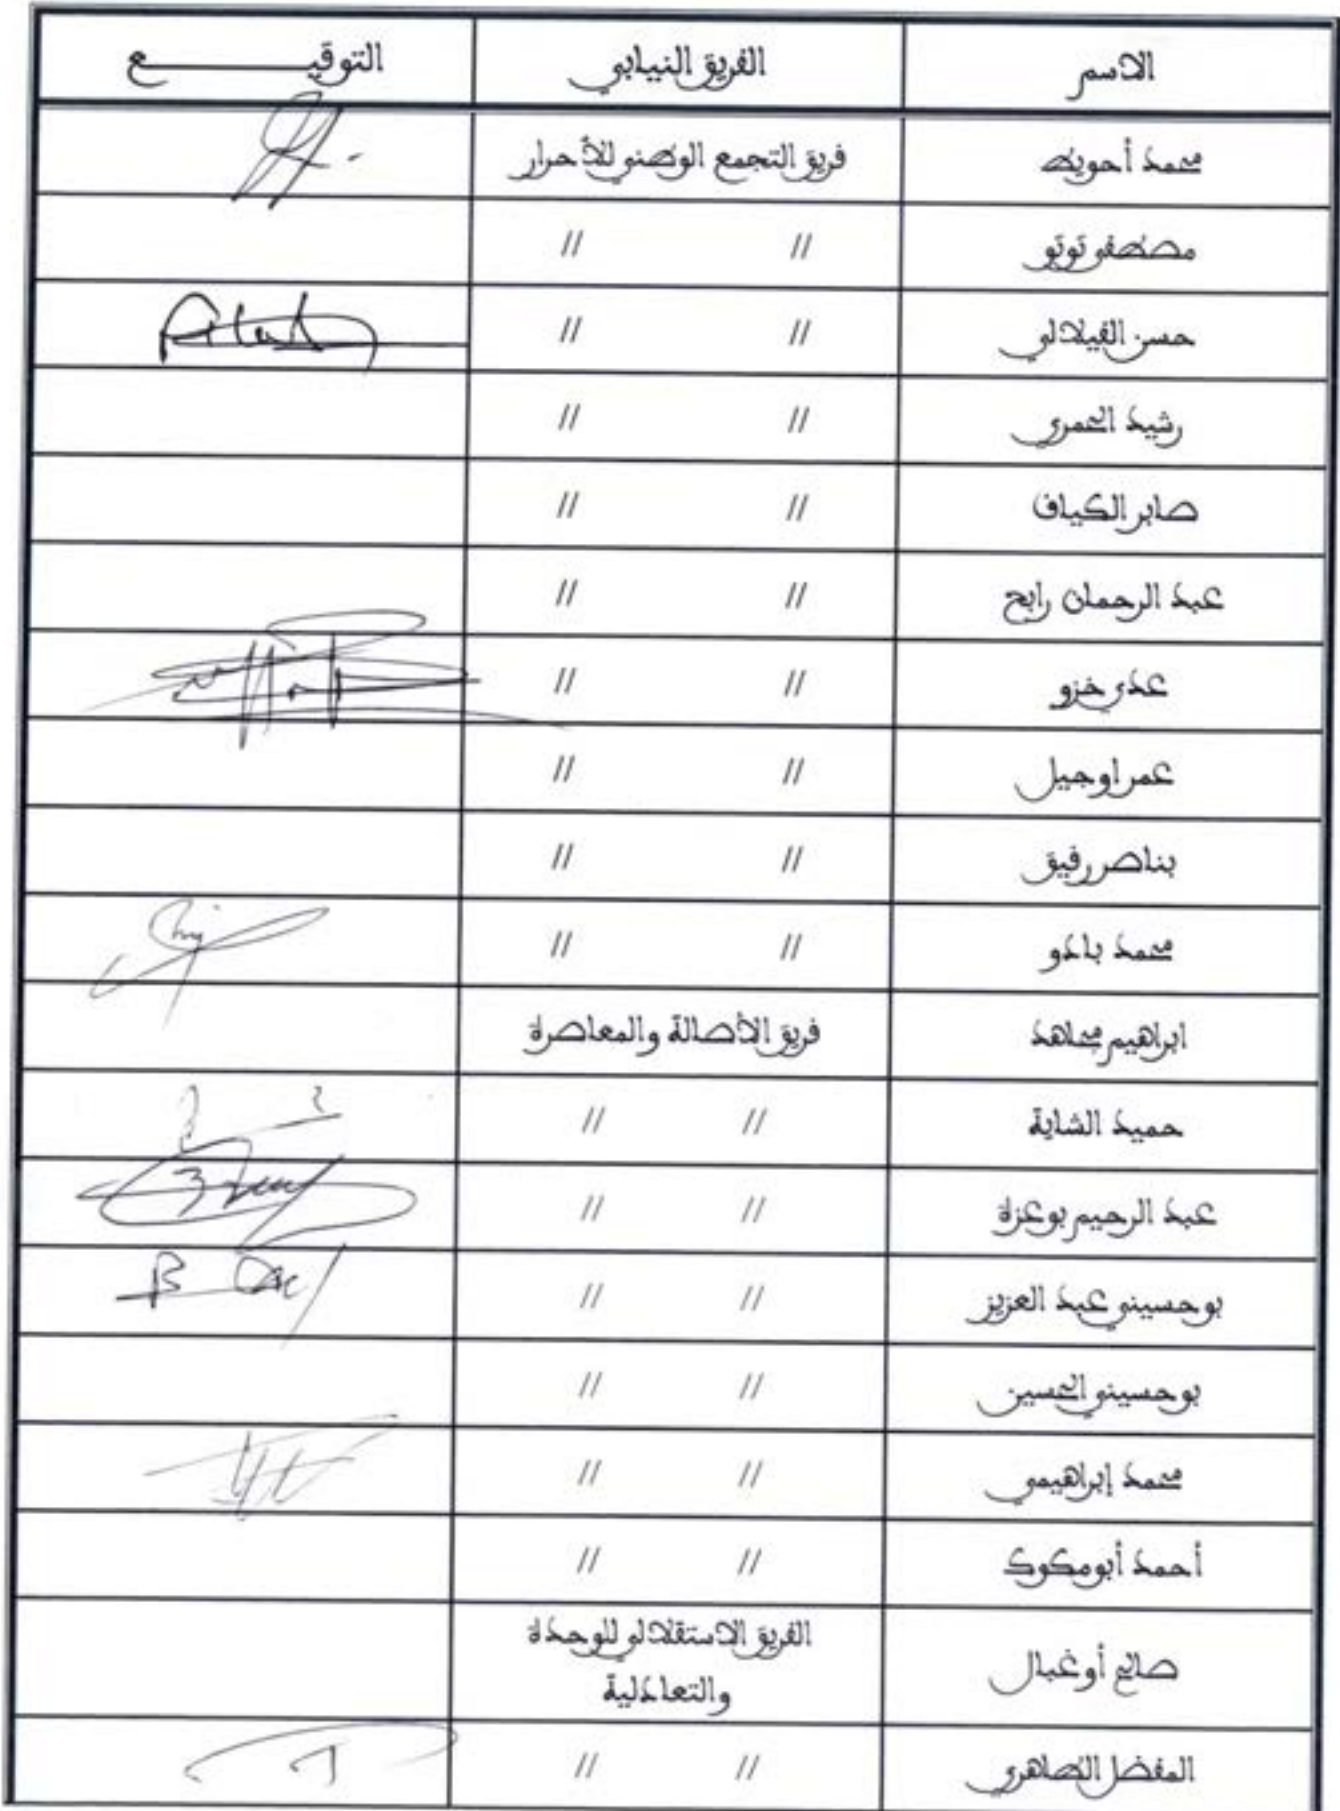 الاسم الفريق النيابي التوقيـــــــع
محمد أحويط فريق التجمع الوطني للأحرار
مصطفى توتو // //
حسن الفيلالي // //
رشيد الحمري // //
صابر الكياف // //
عبد الرحمان رابح // //
عدي خزو // //
عمر اوجيل // //
بناصر رفيق // //
محمد بادو // //
ابراهيم مجاهد فريق الأصالة والمعاصرة
حميد الشاية // //
عبد الرحيم بوعزة // //
بوحسيني عبد العزيز // //
بوحسيني الحسين // //
محمد إبراهيمي // //
أحمد أبومكوك // //
صالح أوغبال الفريق الاستقلالي للوحدة
والتعادلية
المفضل الطاهري // //